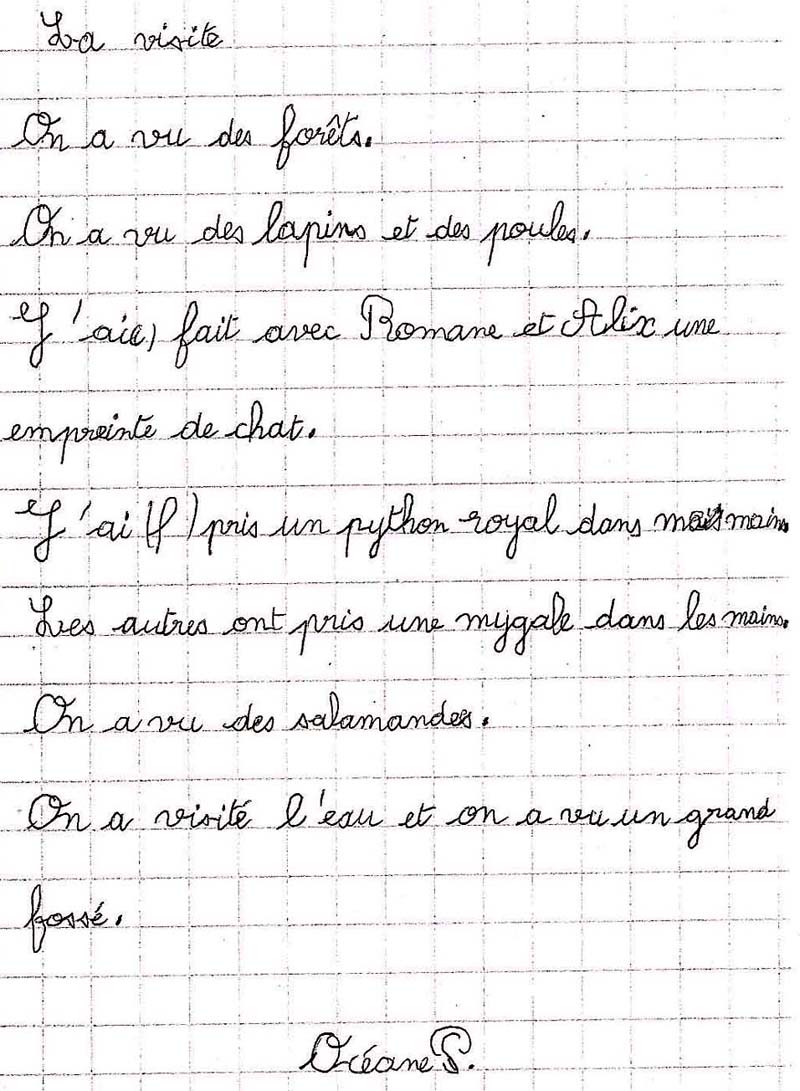 La visite
On a vu des forêts.
On a vu des lapins et des poules.
J'ai(e) fait avec Romane et Alix une
empreinte de chat.
J'ai (f) pris un python royal dans mes mains
Les autres ont pris une mygale dans les mains.
On a vu des salamandes.
On a visité l'eau et on a vu un grand
fossé.
Océane P.